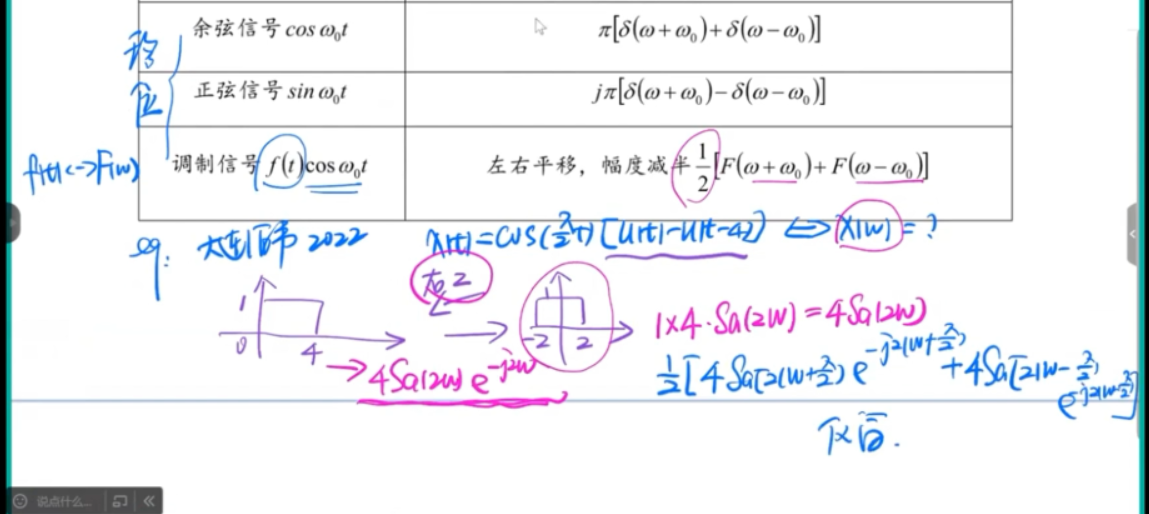 余弦信号 cos ω₀t π[δ(ω+ω₀)+δ(ω−ω₀)]
正弦信号 sin ω₀t jπ[δ(ω+ω₀)−δ(ω−ω₀)]
f(t)<->F(w) 调制信号 f(t)cos ω₀t 左右平移，幅度减半 1/2[F(ω+ω₀)+F(ω−ω₀)]
eg: 2022 x(t)=cos(π/2 t)[u(t)-u(t-4)] <=> X(w)=?
右2
1 0 4
1 -2 2
1×4·Sa(2w)=4Sa(2w)
→4Sa(2w)e^{-j2w}
1/2[4Sa[2(w+π/2)]e^{-j2(w+π/2)}+4Sa[2(w-π/2)]e^{-j2(w-π/2)}]
说点什么...